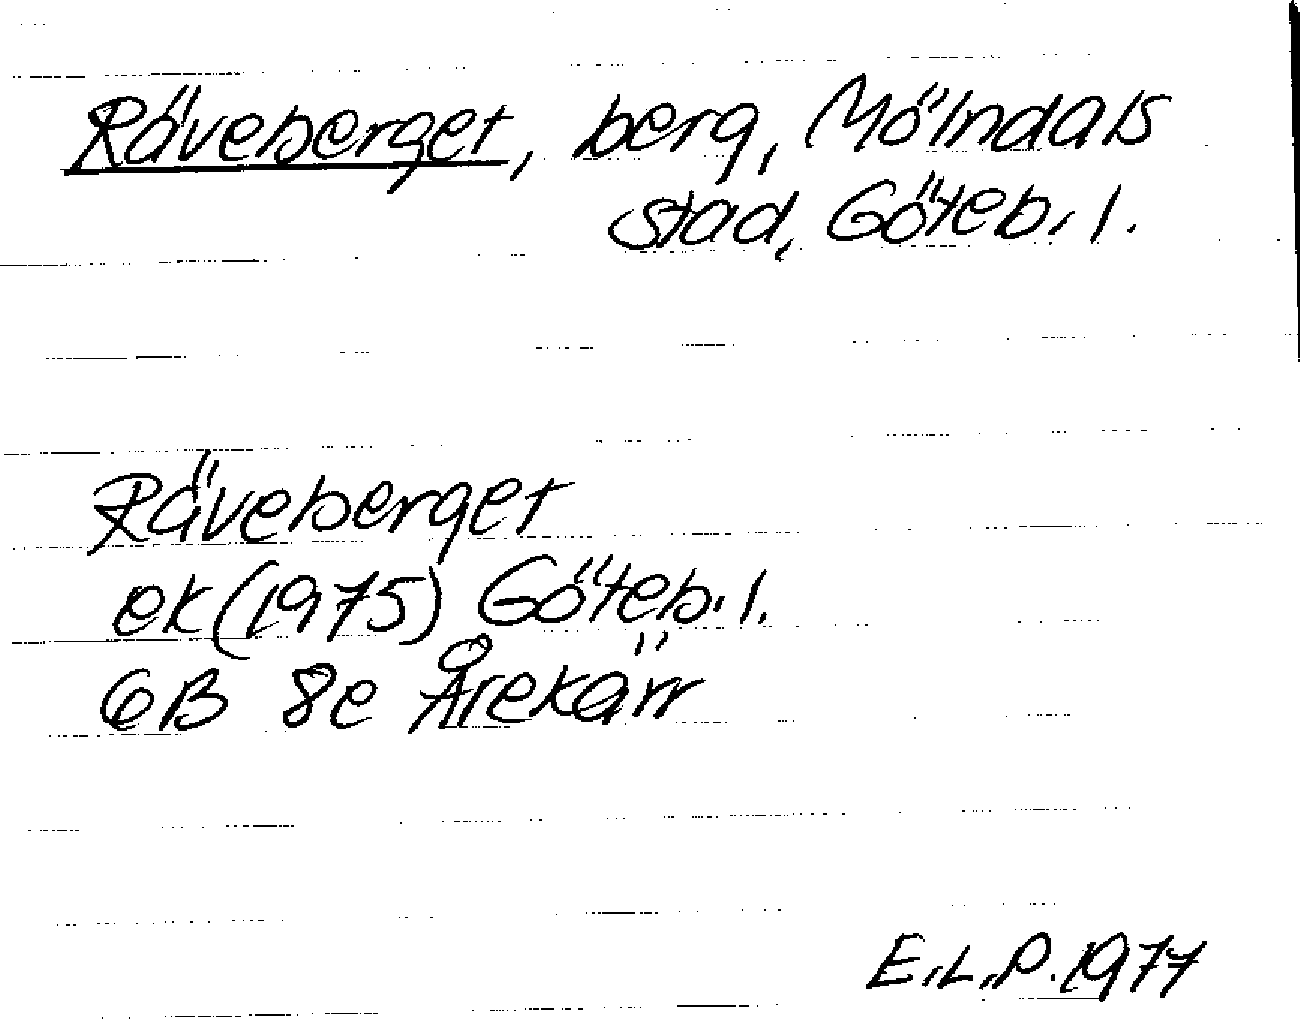 Räveberget, berg, Mölndals
stad, Göteb. l.
Räveberget
ek (1975) Göteb. l.
6B 8e Årekärr
E.L.P. 1977